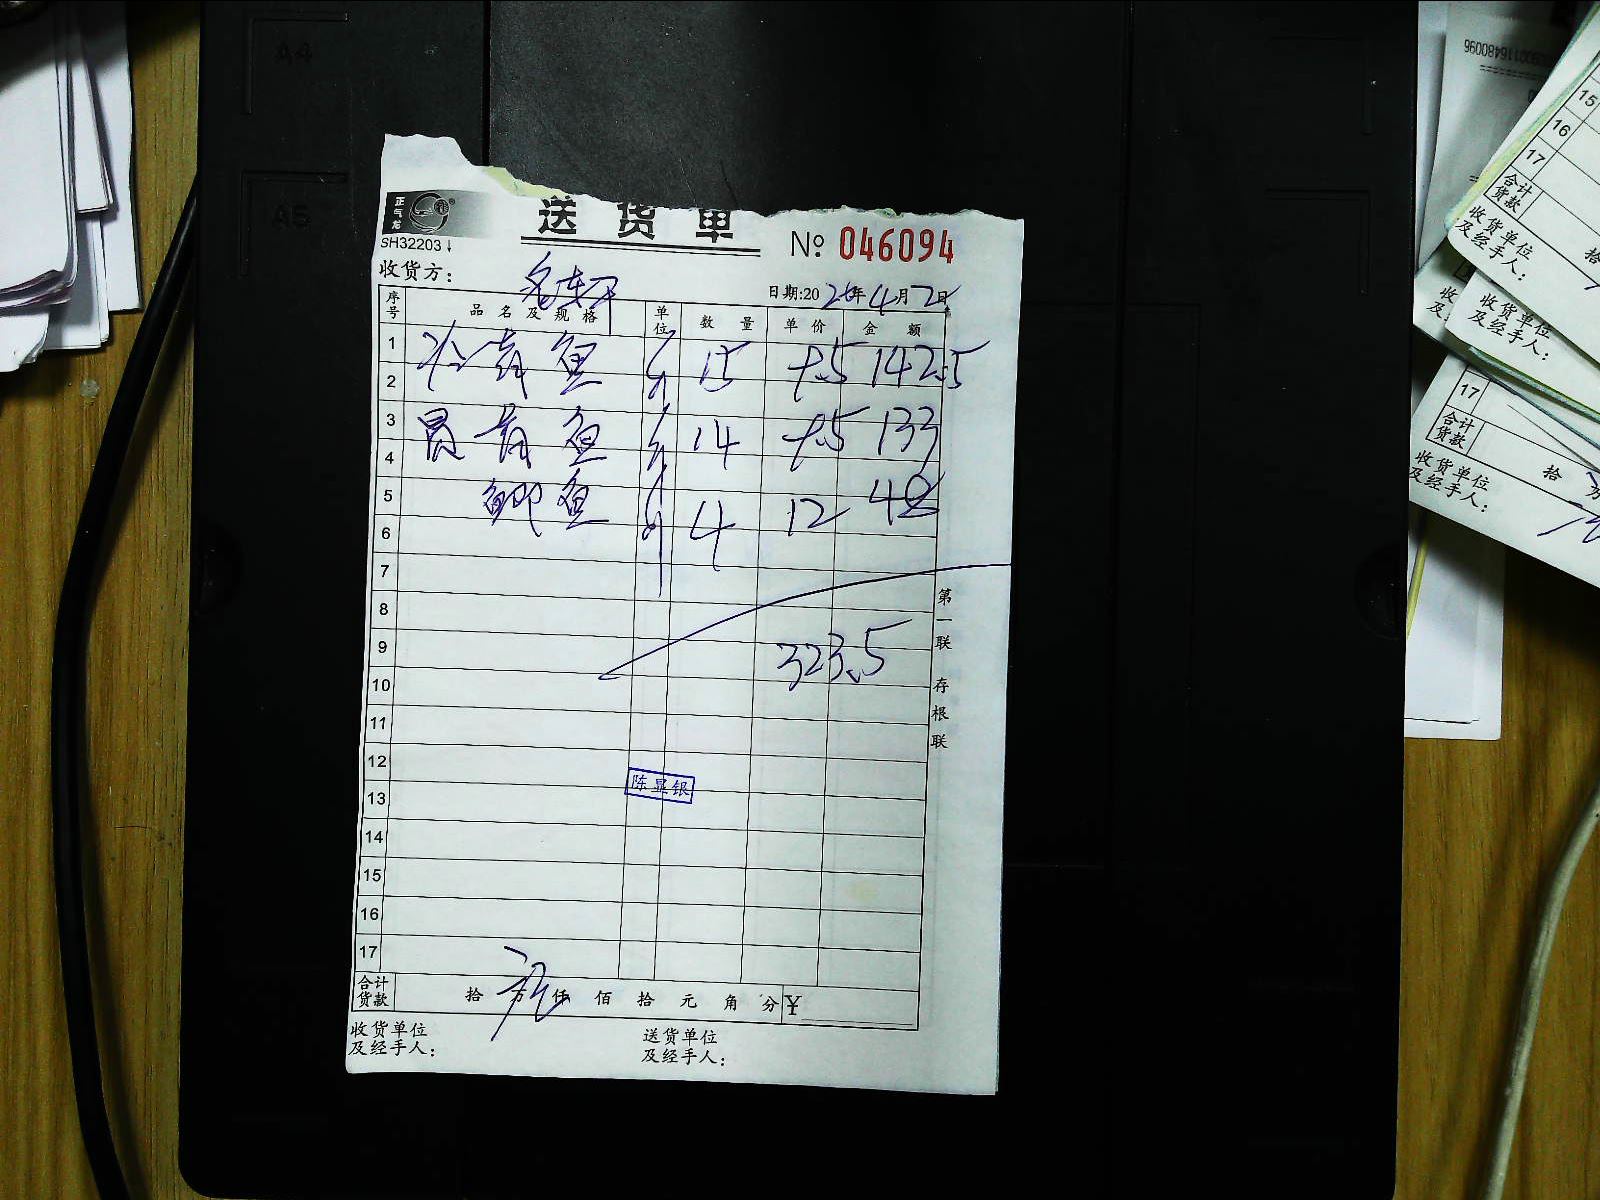 A4
A5
正气龙
送货单
SH32203↓
№ 046094
收货方：
日期:20 年 4 月 2 日
序号 品名及规格 单位 数量 单价 金额
1 鱼 斤 15 142.5
2
3 鱼 斤 14 133
4
5 鲫鱼 斤 4 12 48
6
7
8
9 323.5
10
11
12
13
陈显银
14
15
16
17
合计货款 拾 万 仟 佰 拾 元 角 分 ¥
收货单位
及经手人：
送货单位
及经手人：
第一联 存根联
15
16
17
合计
货款
收货单位
及经手人：
拾
收货单位
及经手人：
17
合计
货款
拾 万
收货单位
及经手人：